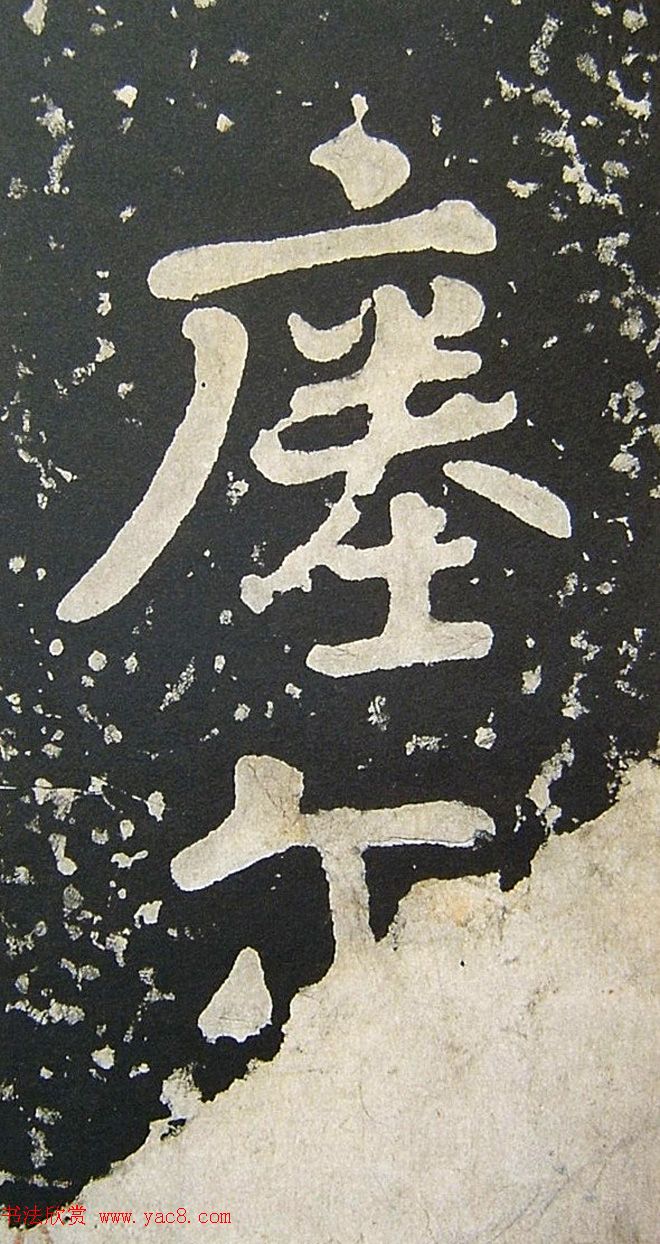 瘞尔
书法欣赏 www.yac8.com